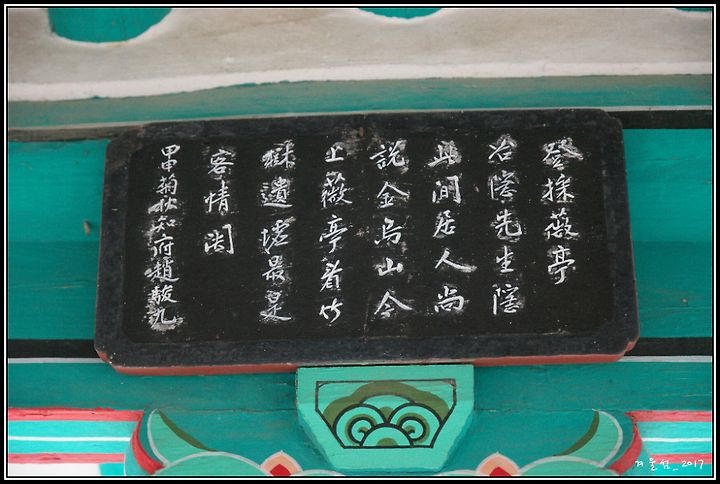 登採薇亭
冶隱先生隱
此間居人尚
說金烏山今
上薇亭看竹
遺墟最是
客情閑
甲申菊秋知府趙駿九
겨울섬_2017